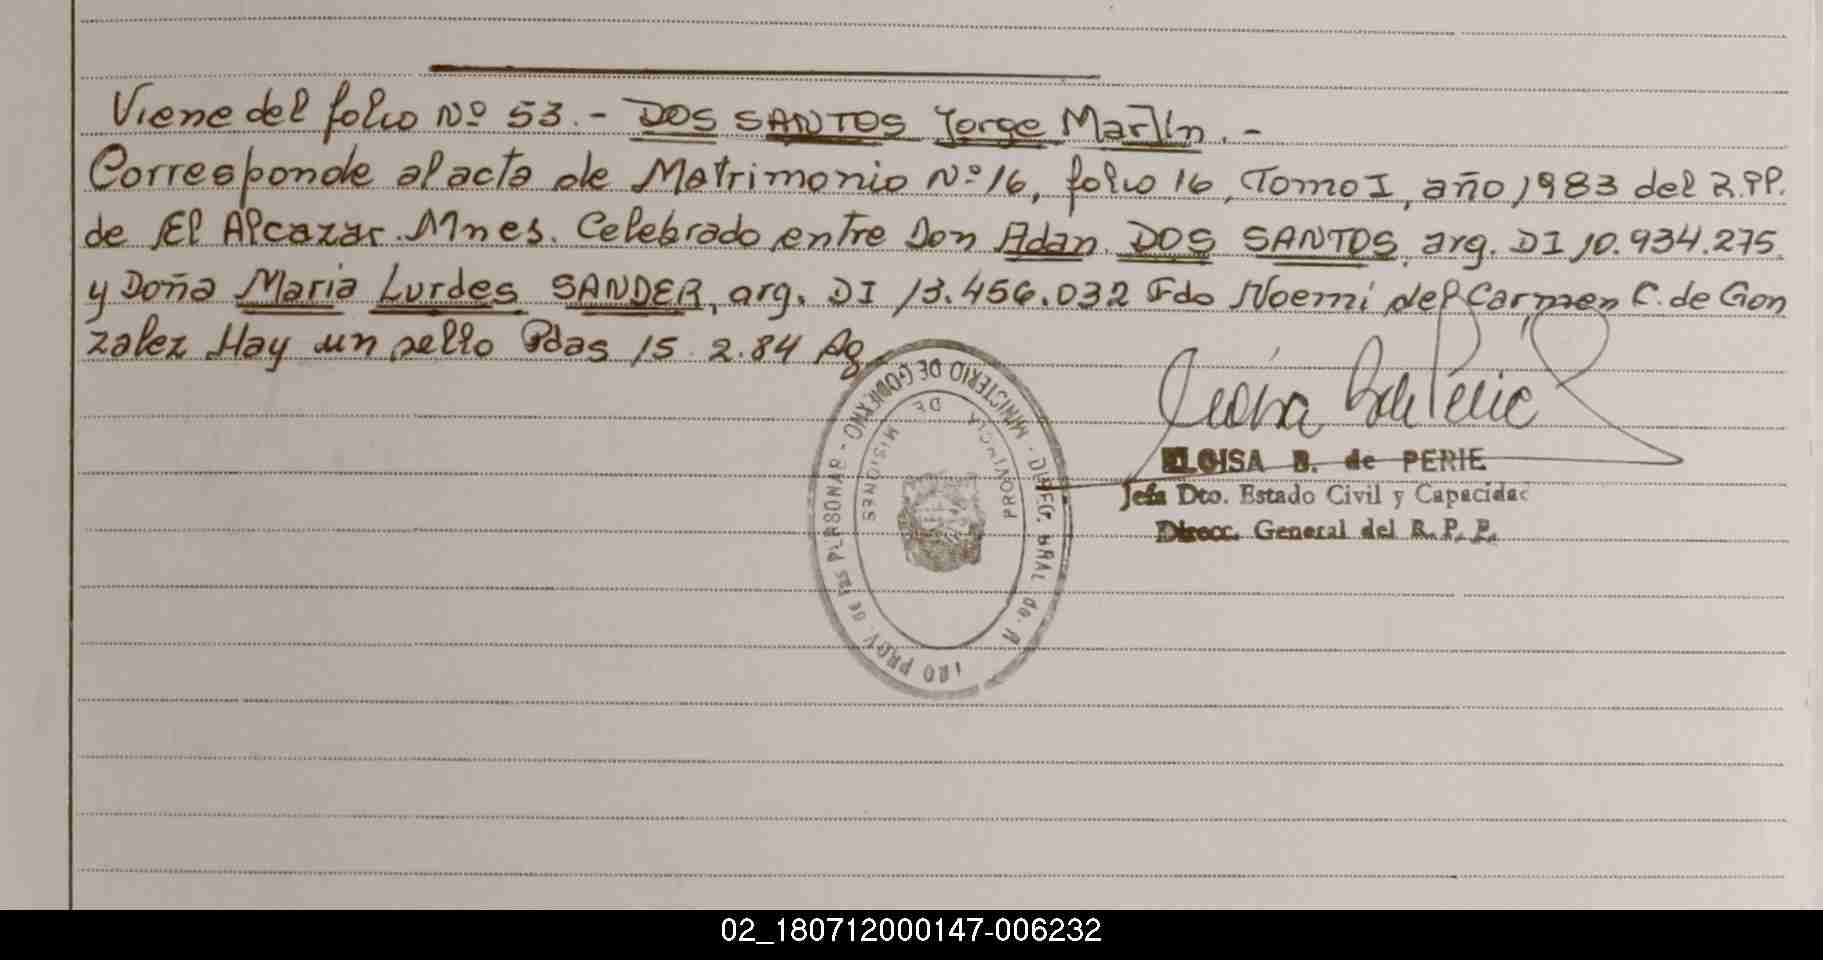 Viene del folio Nº 53.- DOS SANTOS Jorge Martín.-
Corresponde al acta de Matrimonio Nº 16, folio 16, Tomo I, año 1983 del R.PP.
de El Alcazar. Mnes. Celebrado entre Don Adan DOS SANTOS, arg. DI 10.934.275.
y Doña Maria Lurdes SANDER, arg. DI 13.456.032 Fdo Noemi del Carmen C. de Gon
zalez Hay un sello Pdas 15.2.84 Ag
MINISTERIO DE GOBIERNO - DIREC. GRAL de R
PROV. de las PERSONAS
PROVINCIA DE MISIONES
ELOISA B. de PERIE
Jefa Dto. Estado Civil y Capacidad
Direcc. General del R. P. P.
02_180712000147-006232